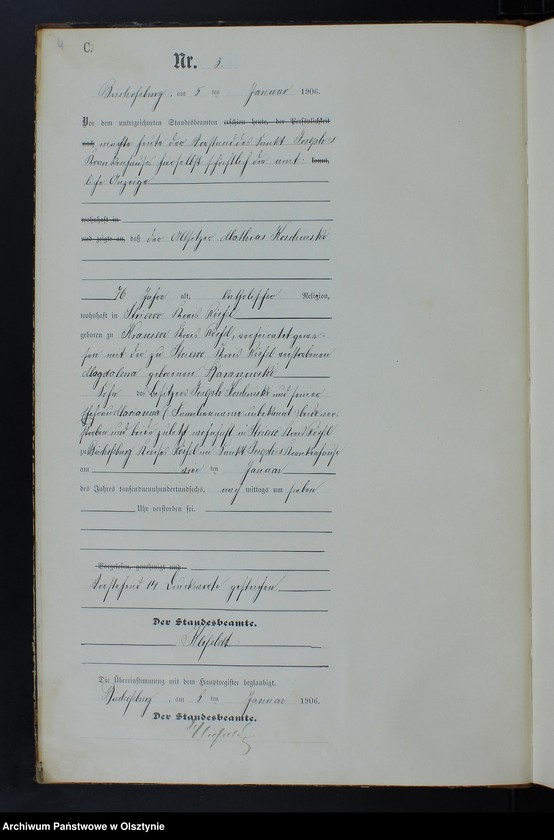 C.
Nr. 5.
Bischofsburg, am 5 ten Januar 1906.
Vor dem unterzeichneten Standesbeamten erschien heute, der Persönlichkeit
nach machte heute der Vorstand des Sankt Josephs
Krankenhauses hierselbst schriftlich die amt- kannt,
liche Anzeige
wohnhaft in
und zeigte an, daß der Altsitzer Mathias
76 Jahre alt, katholischer Religion,
wohnhaft in Kreis Rößel
geboren zu Krausen Kreis Rößel, verheiratet gewe-
sen mit der zu Kreis Rößel verstorbenen
Magdalena geborenen Baranowski
Sohn des Besitzers Joseph und seiner
Ehefrau Marianna (Familienname unbekannt) beide ver-
storben und beide zuletzt wohnhaft in Kreis Rößel
zu Bischofsburg Kreis Rößel im Sankt Josephs Krankenhause
am ten Januar
des Jahres tausendneunhundertundsechs, nachmittags um sieben
Uhr verstorben sei.
Vorgelesen, genehmigt und
Vorstehend 14 Druckworte gestrichen
Der Standesbeamte.
Die Übereinstimmung mit dem Hauptregister beglaubigt.
Bischofsburg, am 5 ten Januar 1906.
Der Standesbeamte.
Archiwum Państwowe w Olsztynie